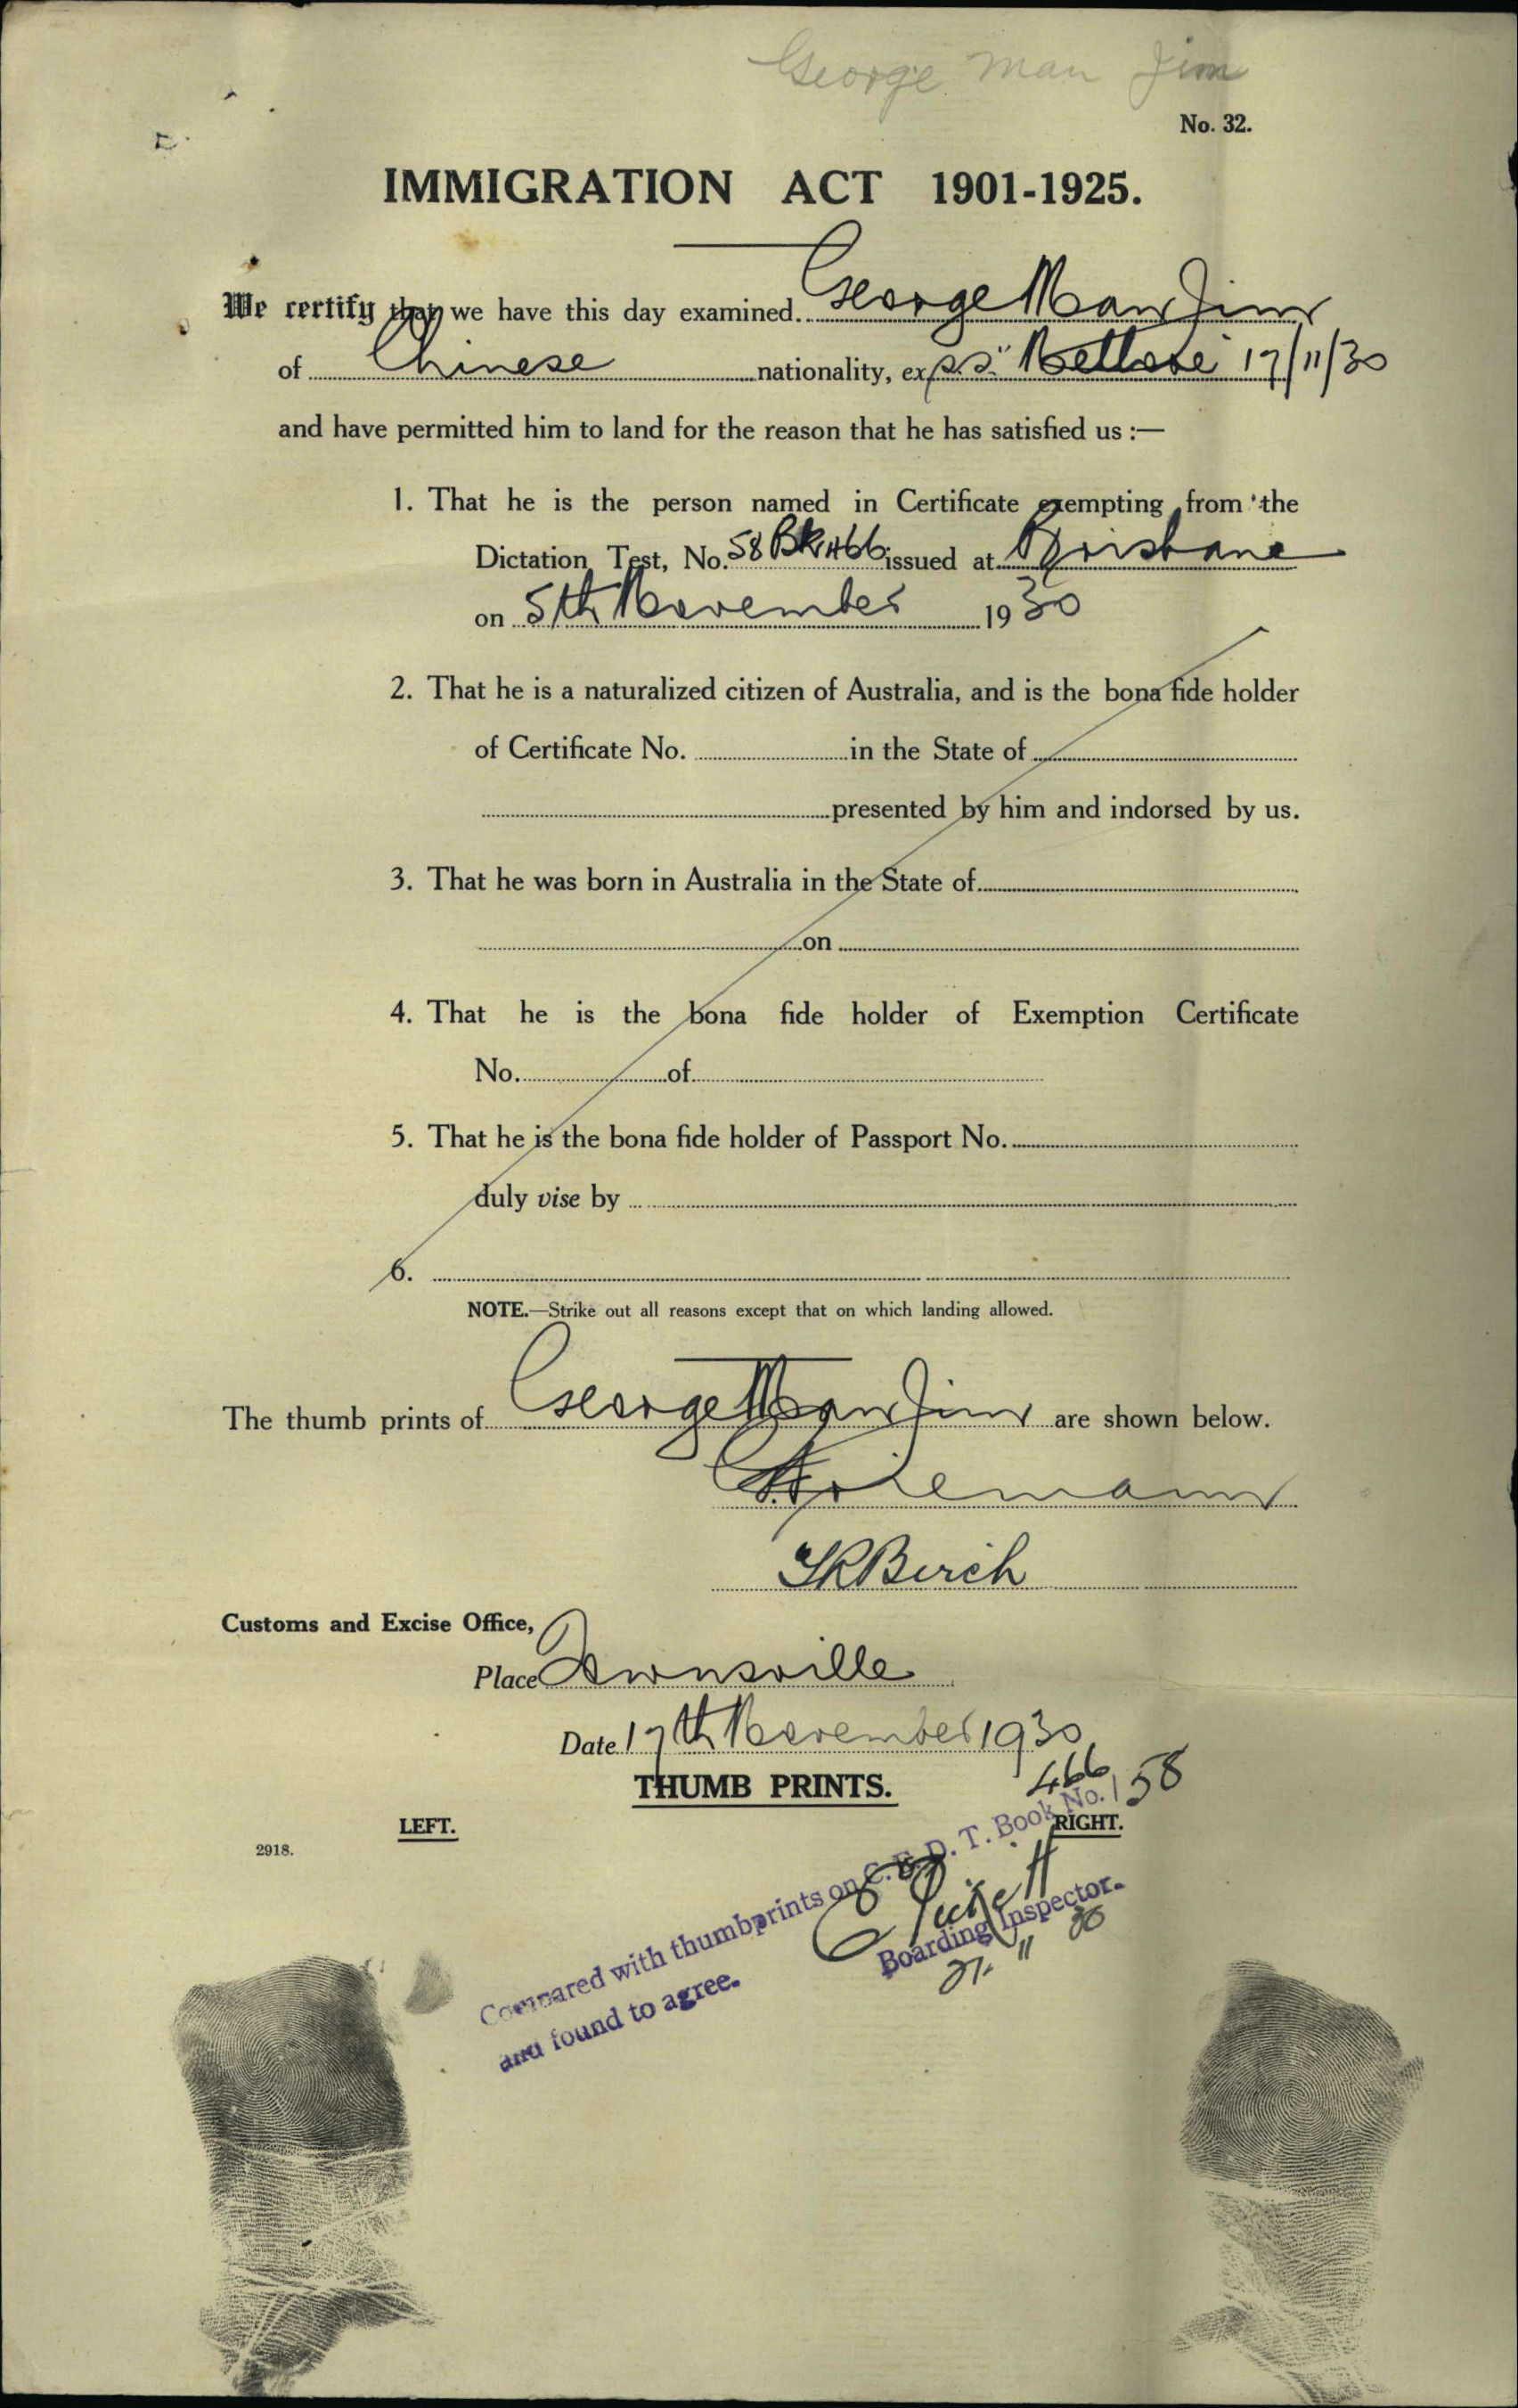 George Man Jim
No. 32.
IMMIGRATION ACT 1901-1925.
We certify that we have this day examined George Man Jim
of Chinese nationality, ex s.s. " 17/11/30
and have permitted him to land for the reason that he has satisfied us :—
1. That he is the person named in Certificate exempting from the
Dictation Test, No. 58 Bk 466 issued at Brisbane
on 5th November 1930
2. That he is a naturalized citizen of Australia, and is the bona fide holder
of Certificate No. in the State of
presented by him and indorsed by us.
3. That he was born in Australia in the State of
on
4. That he is the bona fide holder of Exemption Certificate
No. of
5. That he is the bona fide holder of Passport No.
duly vise by
6.
NOTE.—Strike out all reasons except that on which landing allowed.
The thumb prints of George Man Jim are shown below.
Birch
Customs and Excise Office,
Place Townsville
Date 17th November 1930
THUMB PRINTS.
466/58
LEFT.
RIGHT.
2918.
Compared with thumbprints on C.E.D.T. Book No.
and found to agree.
Boarding Inspector.
21. 11 30